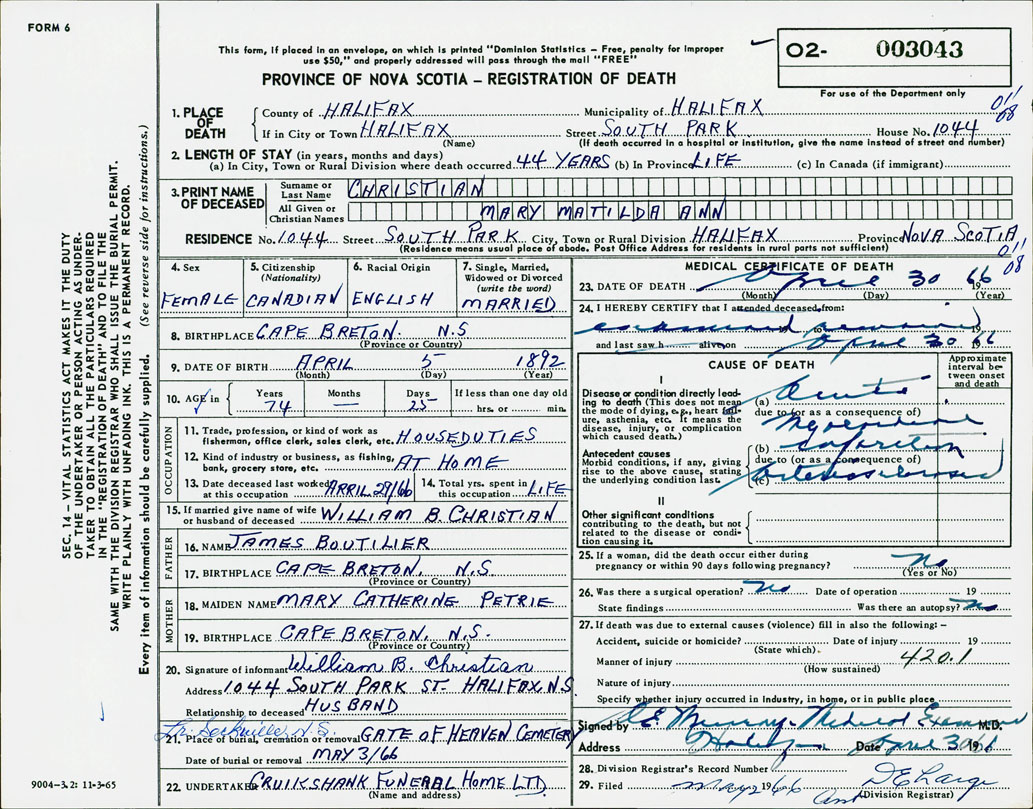 FORM 6
This form, if placed in an envelope, on which is printed "Dominion Statistics – Free, penalty for improper
use $50," and properly addressed will pass through the mail "FREE"
PROVINCE OF NOVA SCOTIA – REGISTRATION OF DEATH
02- 003043
For use of the Department only
SEC. 14 – VITAL STATISTICS ACT MAKES IT THE DUTY
OF THE UNDERTAKER OR PERSON ACTING AS UNDER-
TAKER TO OBTAIN ALL THE PARTICULARS REQUIRED
IN THE "REGISTRATION OF DEATH" AND TO FILE THE
SAME WITH THE DIVISION REGISTRAR WHO SHALL ISSUE THE BURIAL PERMIT.
WRITE PLAINLY WITH UNFADING INK. THIS IS A PERMANENT RECORD.
Every item of information should be carefully supplied. (See reverse side for instructions.)
1. PLACE OF DEATH
County of HALIFAX Municipality of HALIFAX
011
08
If in City or Town HALIFAX Street SOUTH PARK House No. 1044
(Name) (If death occurred in a hospital or institution, give the name instead of street and number)
2. LENGTH OF STAY (in years, months and days)
(a) In City, Town or Rural Division where death occurred 44 YEARS (b) In Province LIFE (c) In Canada (if immigrant)
3. PRINT NAME OF DECEASED
Surname or Last Name CHRISTIAN
All Given or Christian Names MARY MATILDA ANN
RESIDENCE No. 1044 Street SOUTH PARK City, Town or Rural Division HALIFAX Province NOVA SCOTIA
(Residence means usual place of abode. Post Office Address for residents in rural parts not sufficient)
011
08
4. Sex
FEMALE
5. Citizenship (Nationality)
CANADIAN
6. Racial Origin
ENGLISH
7. Single, Married, Widowed or Divorced (write the word)
MARRIED
8. BIRTHPLACE CAPE BRETON. N.S
(Province or Country)
9. DATE OF BIRTH APRIL 5 1892
(Month) (Day) (Year)
10. AGE in Years 74 Months — Days 25 If less than one day old hrs. or min.
OCCUPATION
11. Trade, profession, or kind of work as
fisherman, office clerk, sales clerk, etc. HOUSEDUTIES
12. Kind of industry or business, as fishing,
bank, grocery store, etc. AT HOME
13. Date deceased last worked at this occupation APRIL 29/66
14. Total yrs. spent in this occupation LIFE
15. If married give name of wife
or husband of deceased WILLIAM B. CHRISTIAN
FATHER
16. NAME JAMES BOUTILIER
17. BIRTHPLACE CAPE BRETON, N.S
(Province or Country)
MOTHER
18. MAIDEN NAME MARY CATHERINE PETRIE
19. BIRTHPLACE CAPE BRETON, N.S.
(Province or Country)
20. Signature of informant William B. Christian
Address 1044 SOUTH PARK ST. HALIFAX, N.S
Relationship to deceased HUSBAND
Lr. Sackville, N.S.
21. Place of burial, cremation or removal GATE OF HEAVEN CEMETERY
Date of burial or removal MAY 3/66
22. UNDERTAKER CRUIKSHANK FUNERAL HOME LTD.
(Name and address)
9004–3.2: 11-3-65
MEDICAL CERTIFICATE OF DEATH
23. DATE OF DEATH April 30 1966
(Month) (Day) (Year)
24. I HEREBY CERTIFY that I attended deceased from:
to 19
and last saw h alive on April 30 66
CAUSE OF DEATH
Approximate interval between onset and death
I
Disease or condition directly lead-
ing to death (This does not mean
the mode of dying, e.g., heart fail-
ure, asthenia, etc. It means the
disease, injury, or complication
which caused death.)
(a) Acute
due to (or as a consequence of)
Myocardial
Antecedent causes
Morbid conditions, if any, giving
rise to the above cause, stating
the underlying condition last.
(b) infarction
due to (or as a consequence of)
(c)
II
Other significant conditions
contributing to the death, but not
related to the disease or condi-
tion causing it.
25. If a woman, did the death occur either during
pregnancy or within 90 days following pregnancy? No
(Yes or No)
26. Was there a surgical operation? No Date of operation 19
State findings Was there an autopsy? No
27. If death was due to external causes (violence) fill in also the following: –
Accident, suicide or homicide? Date of injury 19
(State which)
420.1
Manner of injury
(How sustained)
Nature of injury
Specify whether injury occurred in industry, in home, or in public place
Signed by Murray Medical Examiner M.D.
Address Halifax Date April 30 1966
28. Division Registrar's Record Number
29. Filed May 2 1966
(Division Registrar)